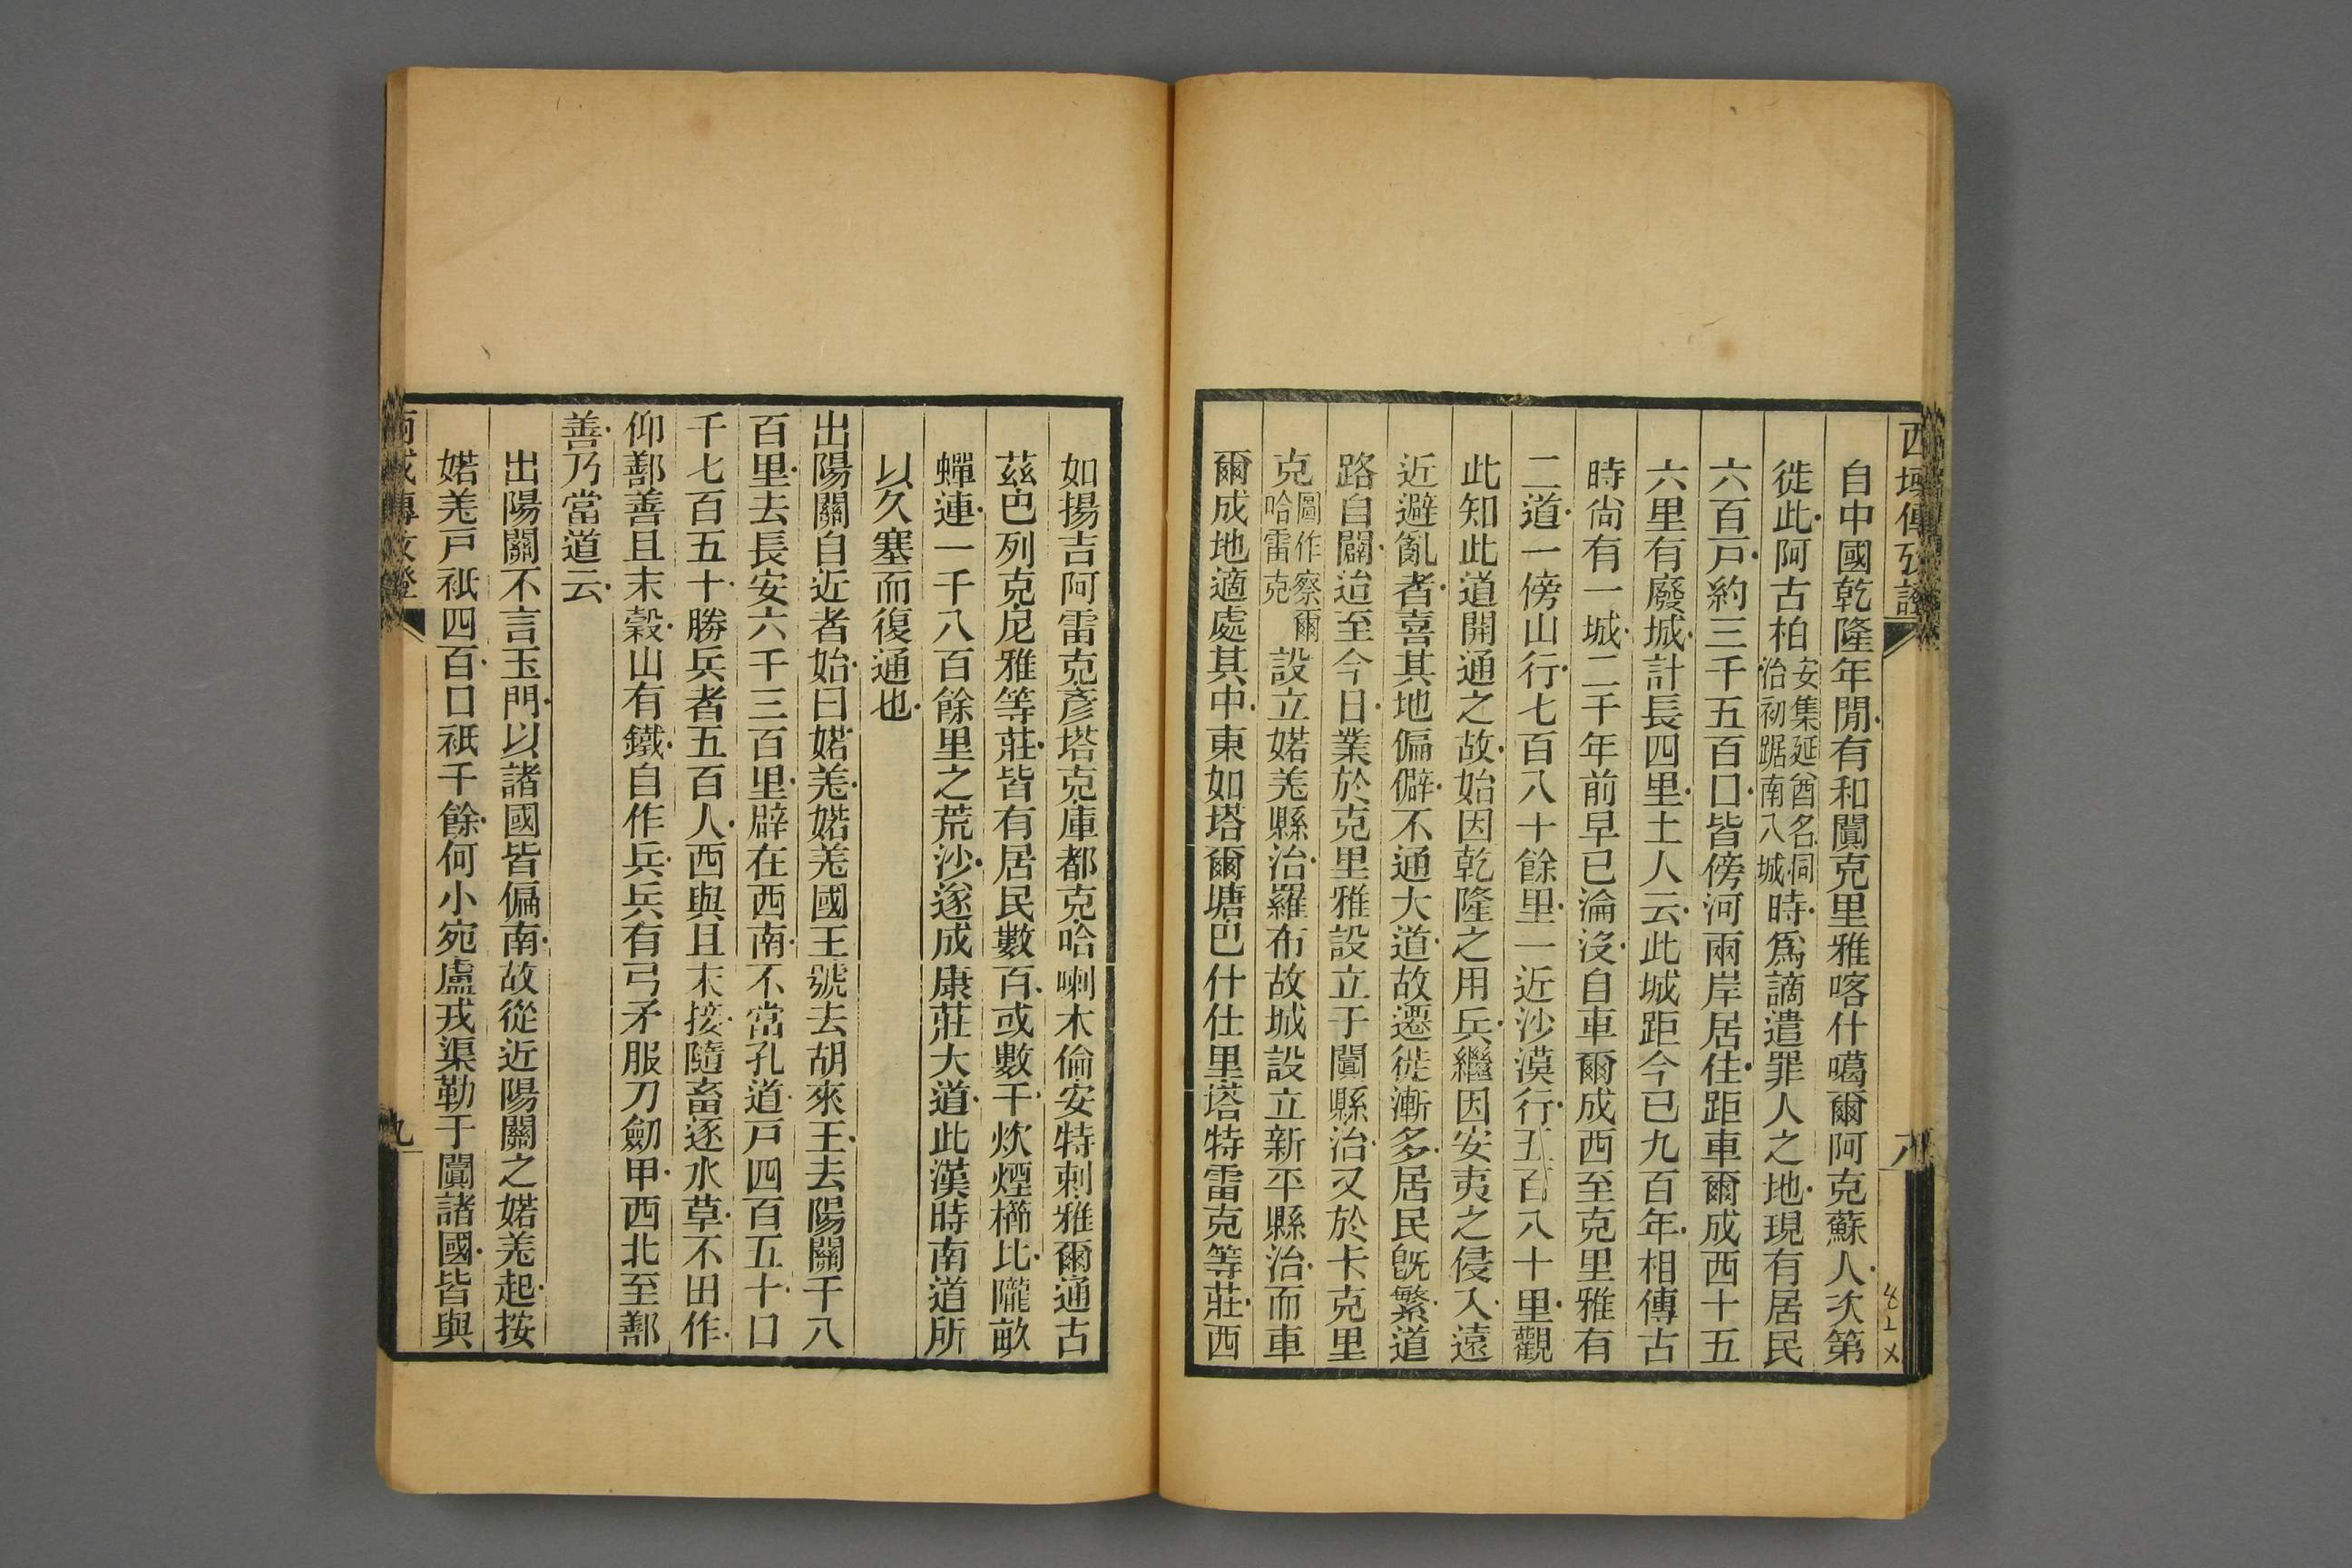 西域傳攷證
八
自中國乾隆年閒有和闐克里雅喀什噶爾阿克蘇人次第
徙此阿古柏安集延酋名伺治初踞南八城時爲謫遣罪人之地現有居民
六百戸約三千五百口皆傍河兩岸居住距車爾成西十五
六里有廢城計長四里土人云此城距今已九百年相傳古
時尙有一城二千年前早已淪沒自車爾成西至克里雅有
二道一傍山行七百八十餘里一近沙漠行五百八十里觀
此知此道開通之故始因乾隆之用兵繼因安夷之侵入遠
近避亂者喜其地偏僻不通大道故遷徙漸多居民旣繁道
路自闢迨至今日業於克里雅設立于闐縣治又於卡克里
克圖作察爾哈雷克設立婼羌縣治羅布故城設立新平縣治而車
爾成地適處其中東如塔爾塘巴什仕里塔特雷克等莊西
如揚吉阿雷克彥塔克庫都克哈喇木倫安特剌雅爾通古
茲巴列克尼雅等莊皆有居民數百或數千炊煙櫛比隴畝
蟬連一千八百餘里之荒沙遂成康莊大道此漢時南道所
以久塞而復通也
出陽關自近者始曰婼羌婼羌國王號去胡來王去陽關千八
百里去長安六千三百里辟在西南不當孔道戸四百五十口
千七百五十勝兵者五百人西與且末接隨畜逐水草不田作
仰鄯善且末穀山有鐵自作兵兵有弓矛服刀劒甲西北至鄯
善乃當道云
出陽關不言玉門以諸國皆偏南故從近陽關之婼羌起按
婼羌戸祇四百口祇千餘何小宛盧戎渠勒于闐諸國皆與
西域傳攷證
九